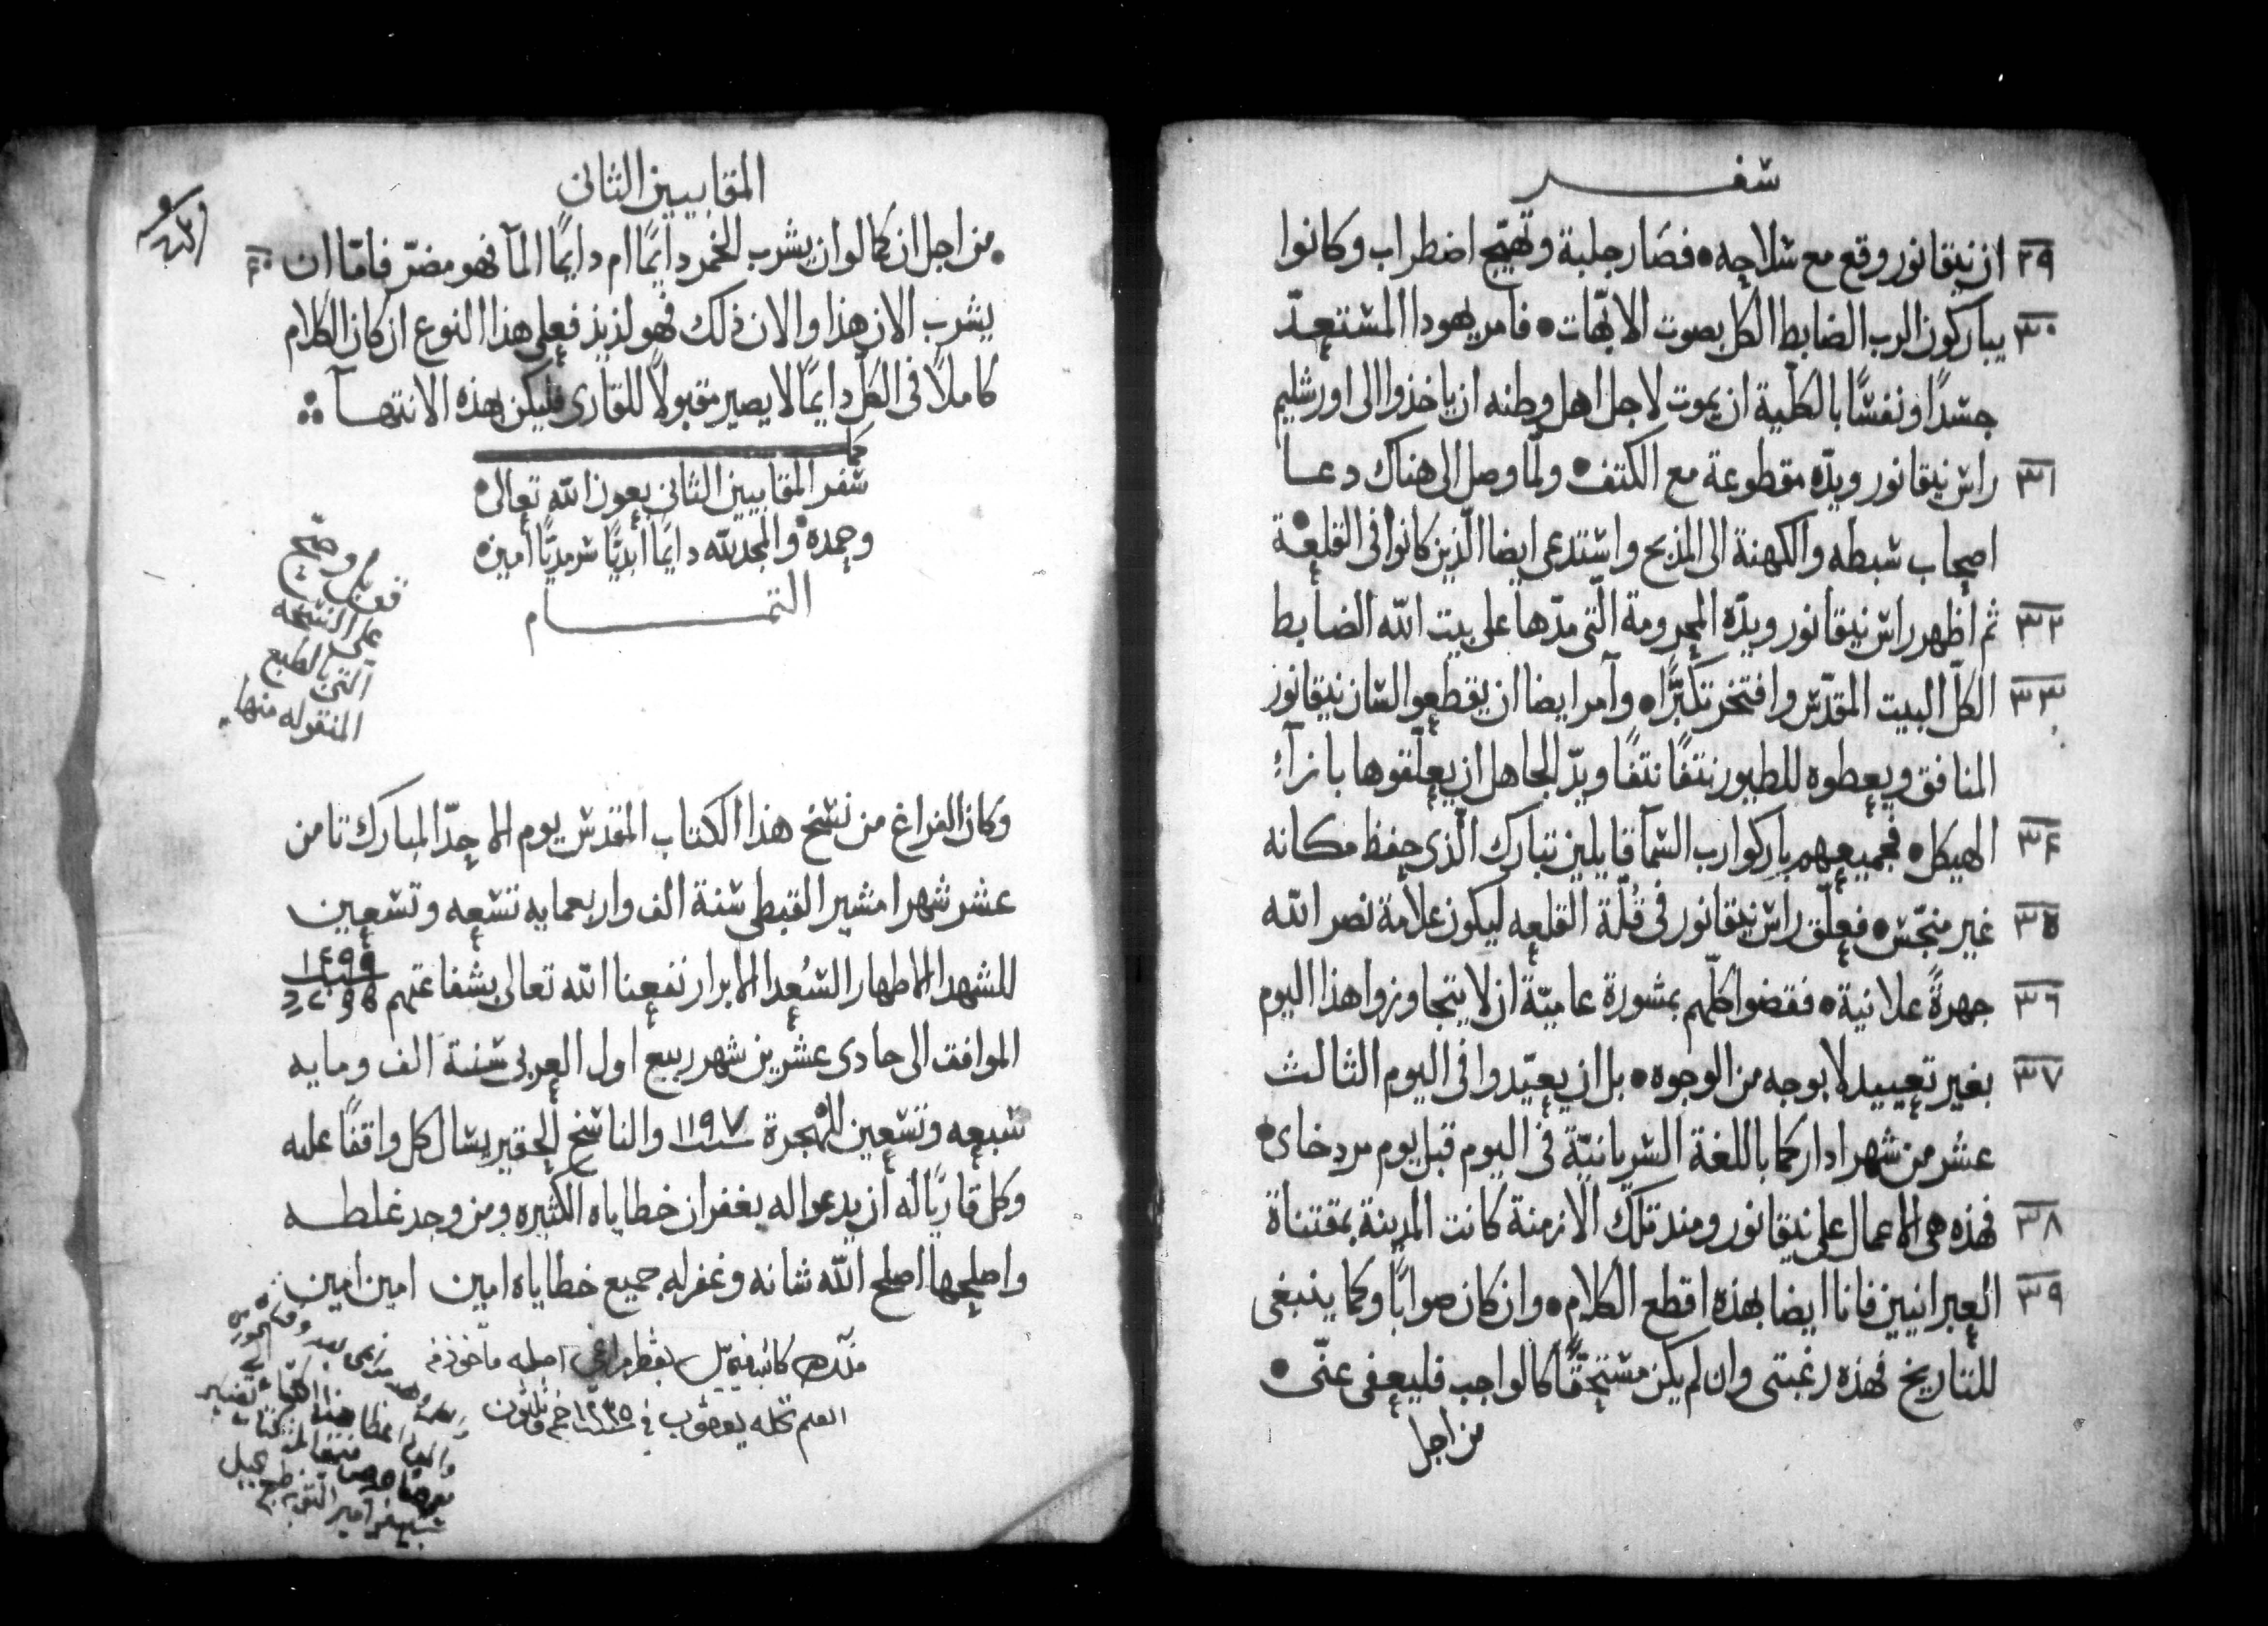 سفر
٢٩ ان نيقانور وقع مع سلاحه • فصار جلبة وتهيج اضطراب وكانوا
٣٠ يباركون الرب الضابط الكل بصوت الابهات • فامر يهودا المستعدّ
جسدًا ونفسًا بالكلية ان يموت لاجل اهل وطنه ان ياخذوا الى اورشليم
٣١ راس نيقانور ويدّه مقطوعة مع الكتف • ولمّا وصل الى هناك دعا
اصحاب سبطه والكهنة الى المذبح واستدعى ايضا الّذين كانوا فى القلعة •
٣٢ ثم اظهر راس نيقانور ويدّه المجرومة الّتى مدّها على بيت الله الضابط
٣٣ الكلّ البيت المقدّس وافتخر تكبّرًا • وآمر ايضا ان يقطعوا لسان نيقانور
المنافق ويعطوه للطيور نتفًا نتفًا ويدّ الجاهل ان يعلّقوها بازآء
٣٤ الهيكل • فجميعهم باركوا رب السّمآ قايلين تبارك الّذى حفظ مكانه
٣٥ غير منجّس • فعلّق راس نيقانور فى قُلّة القلعه ليكون علامة نصر الله
٣٦ جهرةً علانية • فقضوا كلّهم بمشورة عاميّة ان لا يتجاوزوا هذا اليوم
٣٧ بغير تعييد لا بوجه من الوجوه • بل ان يعيّدوا فى اليوم الثالث
عشر من شهر ادار كما باللغة السّريانيّة فى اليوم قبل يوم مردخاى •
٣٨ فهذه هى الاعمال على نيقانور ومند تلك الازمنة كانت المدينة بمقتناة
٣٩ العبرانيين فانا ايضا بهذه اقطع الكلام • وان كان صوابًا وكما ينبغى
للتاريخ فهذه رغبتى وان لم يكن مستحقًّا كالواجب فليعفى عنّى •
من اجل
المقابيين الثانى
٤٠ • من اجل ان كما لو ان يشرب الخمر دايمًا ام دايمًا المآ فهو مضرّ فامّا ان
يشرب الان هذا والان ذلك فهو لذيذ فعلى هذا النوع ان كان الكلام
كاملًا فى الكلّ دايمًا لا يصير مقبولًا للقارى فليكن بهذه الانتهآ
كمل
سفر المقابيين الثانى بعون الله تعالى •
وحمده • والمجد لله دايمًا ابديًّا سرمديًّا امين •
التمام
قوبل وصحّ
على النسخه
الّتى بالطبع
المنقوله منها
وكان الفراغ من نسخ هذا الكتاب المقدس يوم الاحدّ المبارك تامن
عشر شهر امشير القبطى سنة الف واربعمايه تسعه وتسعين
للشهدا الاطهار السُعدا الابرار نفعنا الله تعالى بشفاعتهم ١٤٩٩
الموافق الى حادى عشرين شهر ربيع اول العربى سنة الف ومايه
سبعه وتسعين للهجرة ١١٩٧ والناسخ الحقير يسال كل واقفًا عليه
وكل قاريًا له ان يدعوا له بغفران خطاياه الكثيره ومن وجد غلطه
واصلحها اصلح الله شانه وغفر له جميع خطاياه امين امين امين